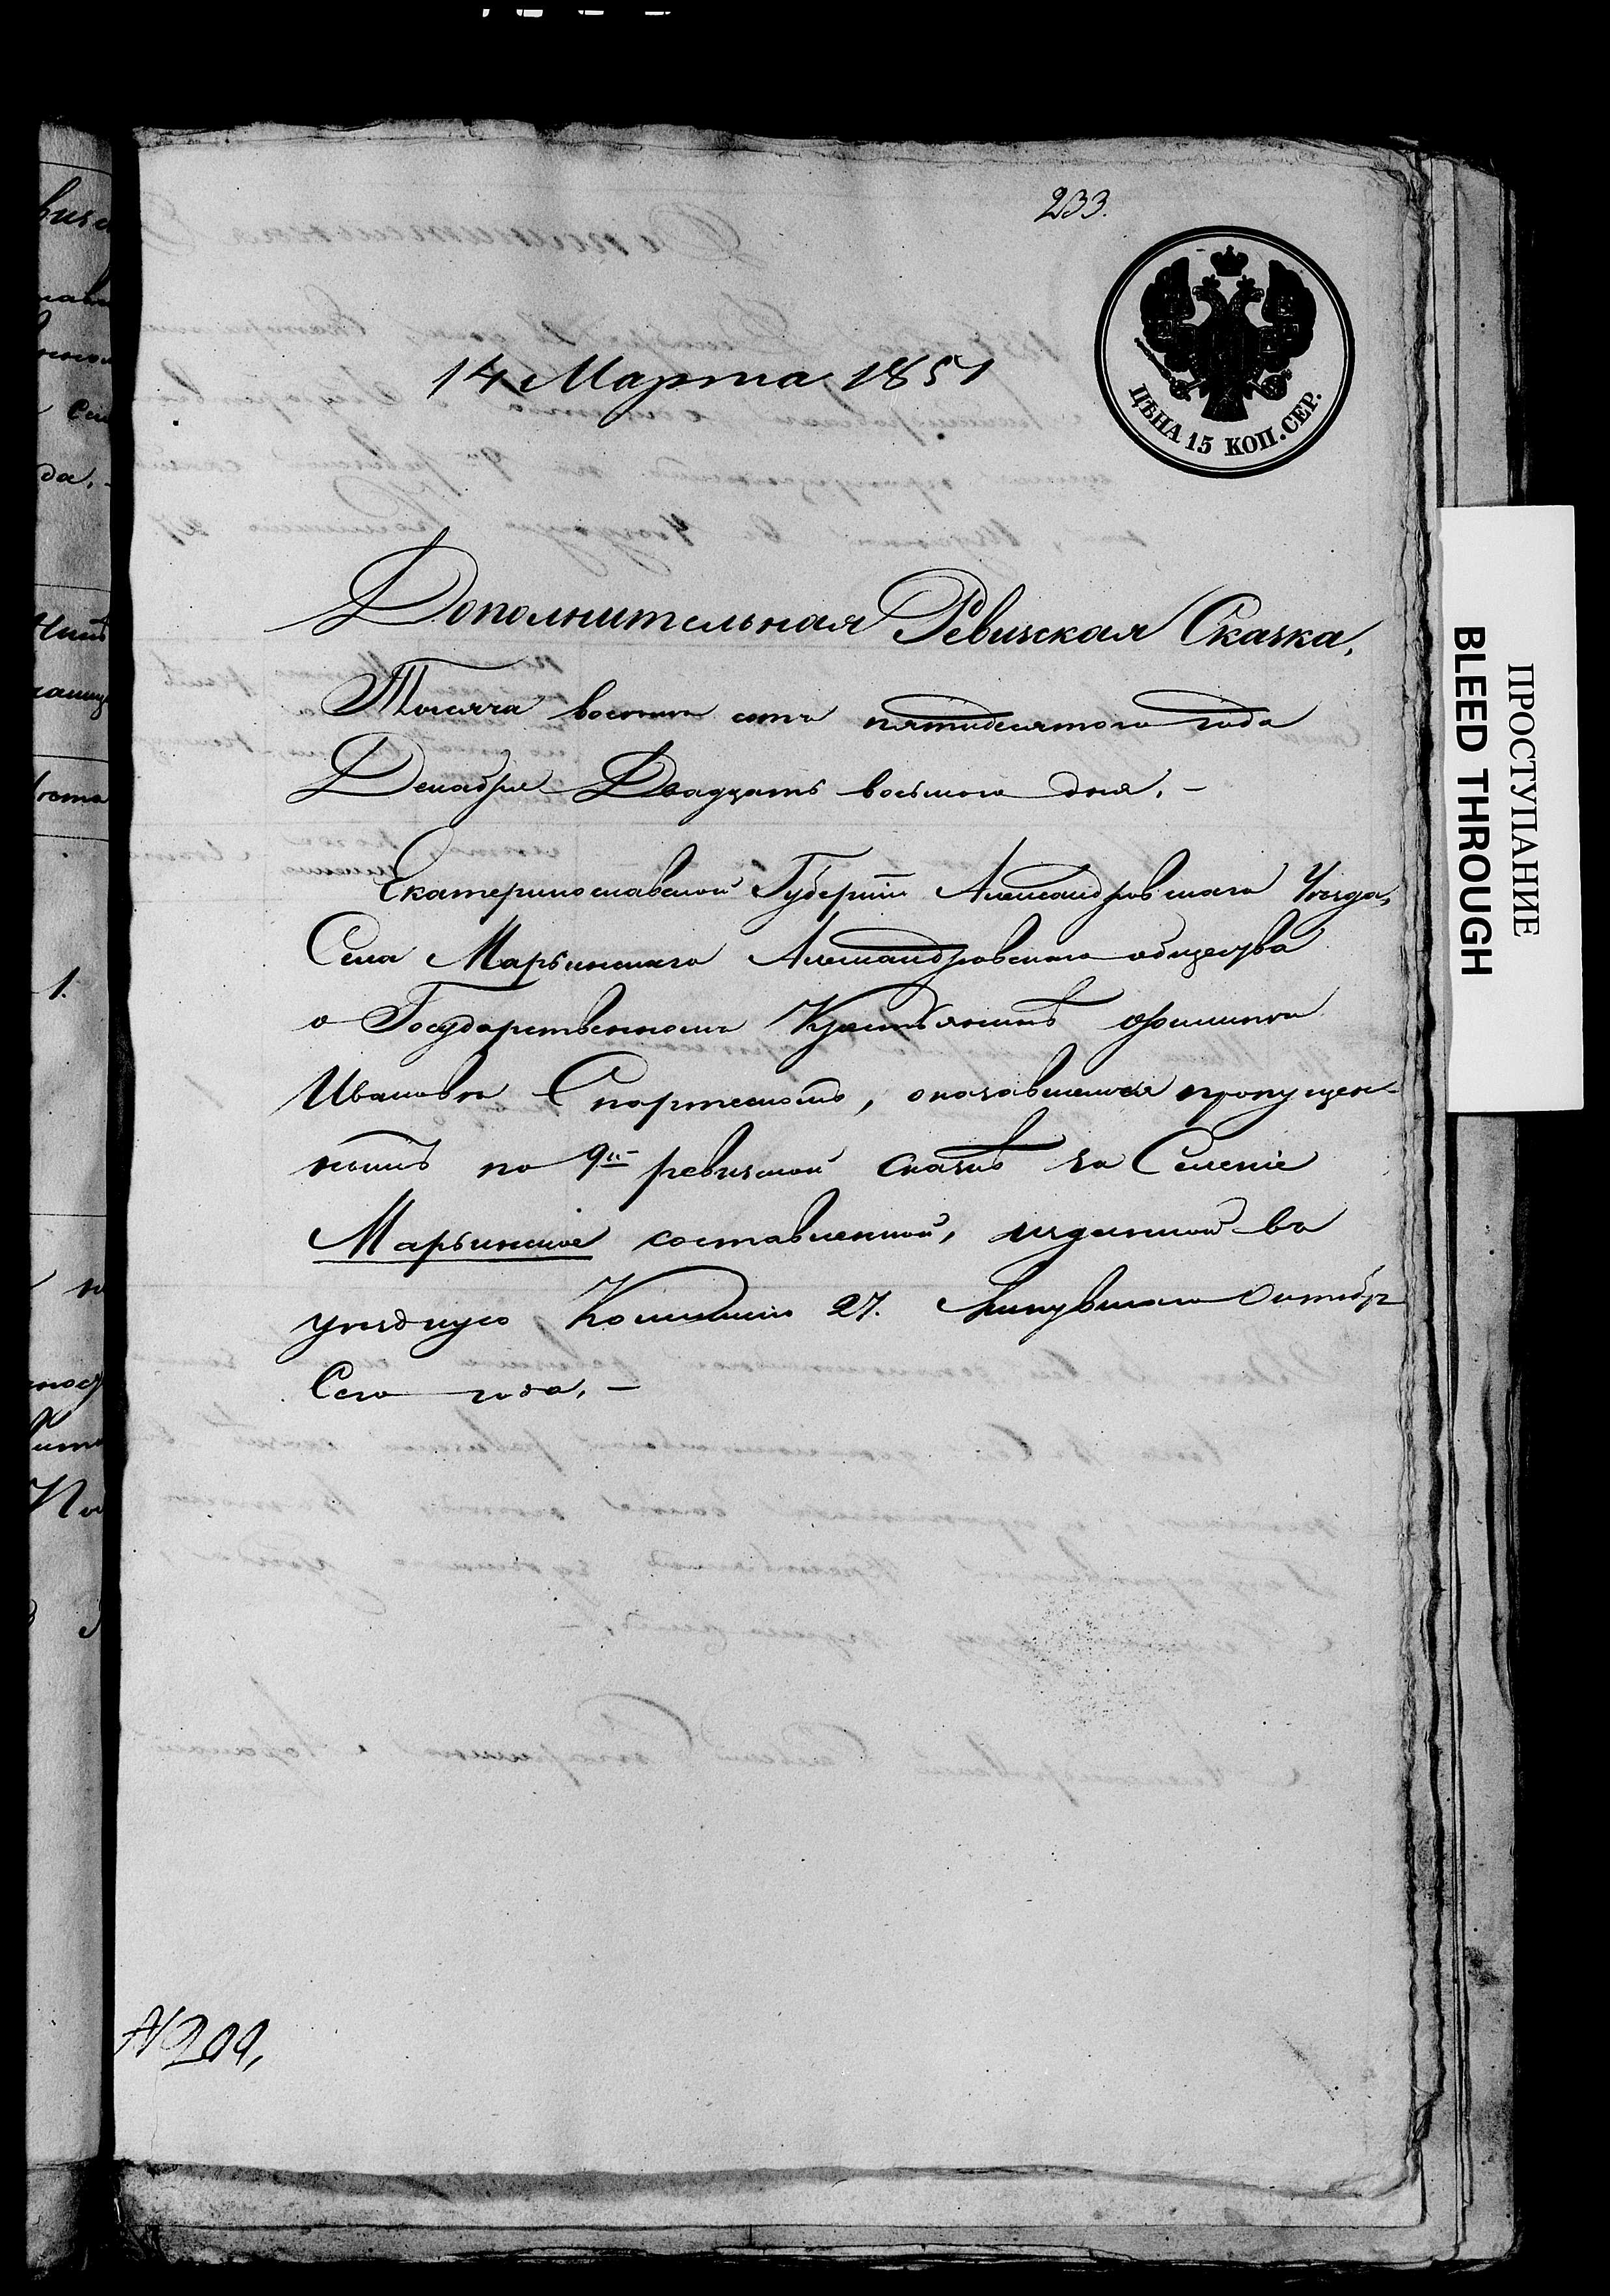 233.
ЦѢНА 15 КОП. СЕР.
14 Марта 1851
Дополнительная Ревизская Сказка,
Тысяча восемь сотъ пятидесятого года
Декабря Двадцать восьмого дня. –
Екатеринославской Губерніи Александровскаго Уѣзда,
Села Марьинскаго Александровскаго общества
о Государственномъ Крестьянинѣ
Ивановѣ оказавшемся пропущен-
нымъ по 9й ревизской сказкѣ за Селеніе
Марьинское составленной, изданной въ
уѣздную Коммисію 27. минувшаго Октября
Сего года. –
ПРОСТУПАНИЕ
BLEED THROUGH
1.
да. –